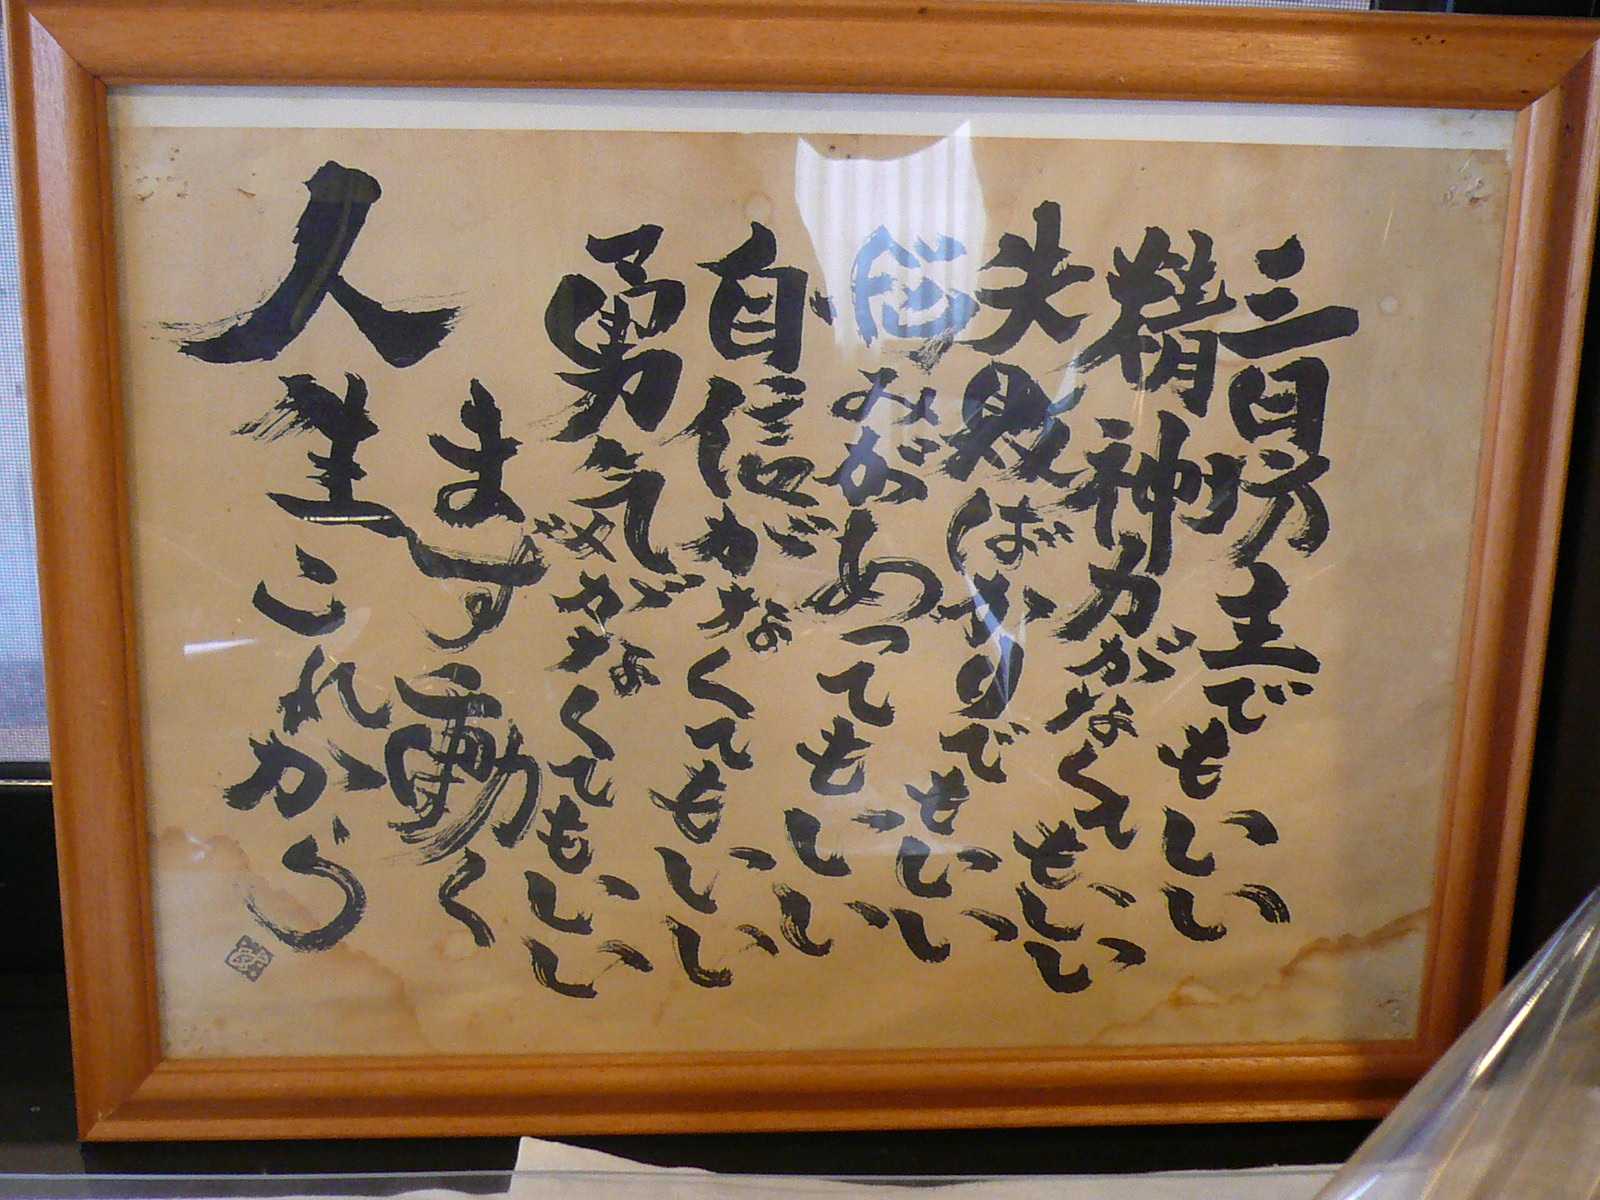 三日坊主でもいい
精神力がなくてもいい
失敗ばかりでもいい
悩みがあってもいい
自信がなくてもいい
勇気がなくてもいい
まず動く
人生これから